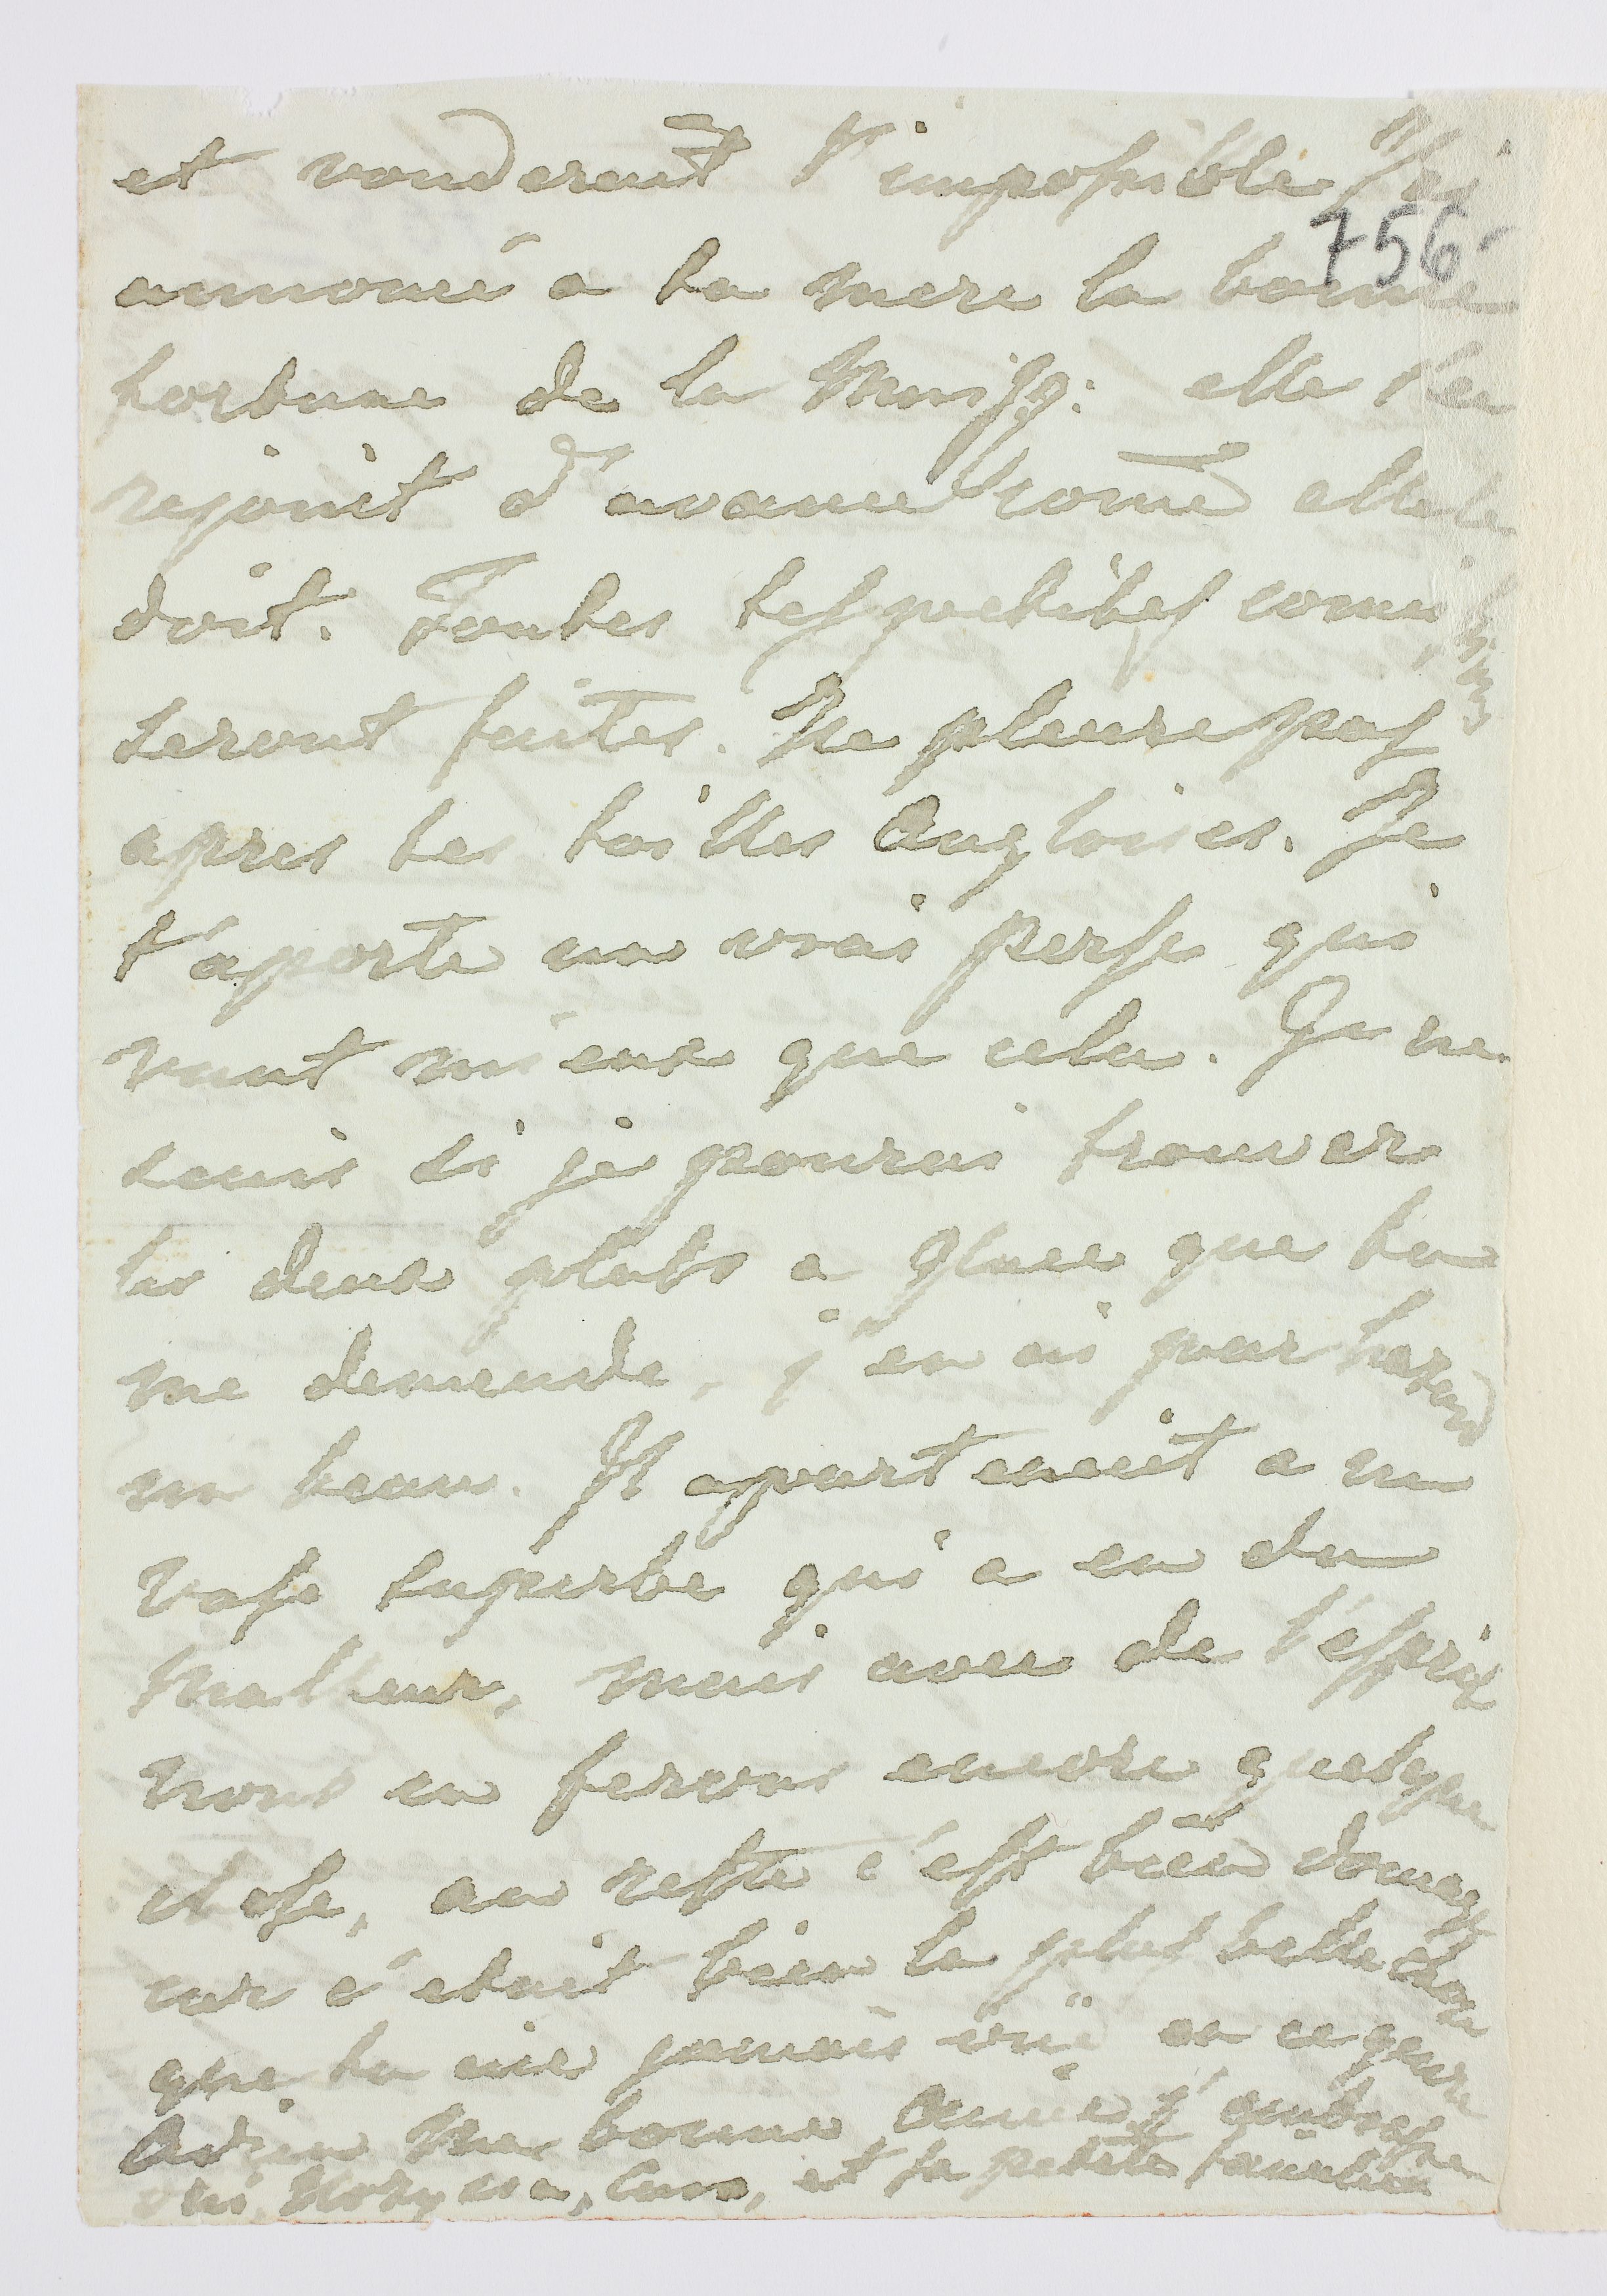 et vouderent l'impossible J'ai
756
annoncé a ta mere la bonne
fortune de la Miss: elle s'en
rejouit d'avance come elle le
doit. Toutes tes petites comissions
seront faites. Ne pleure pas
apres tes toilles Angloises. Je
t'aporte un vrai perse qui
vaut mieux que cela. Je ne
sais si je pourai trouver
les deux plats a glace que tu
me demende, j'en ai par hazard
un beau. Il apartenait a un
vase superbe qui a eu du
malheur, mais avec de l'esprit
nous en ferons encore quelque
chose, au reste c'est bien domage
car c'etait bien la plus belle chose
que tu aie jamais vüe en ce genre
Adieu ma bonne Amie j'embrasse
et ta petite